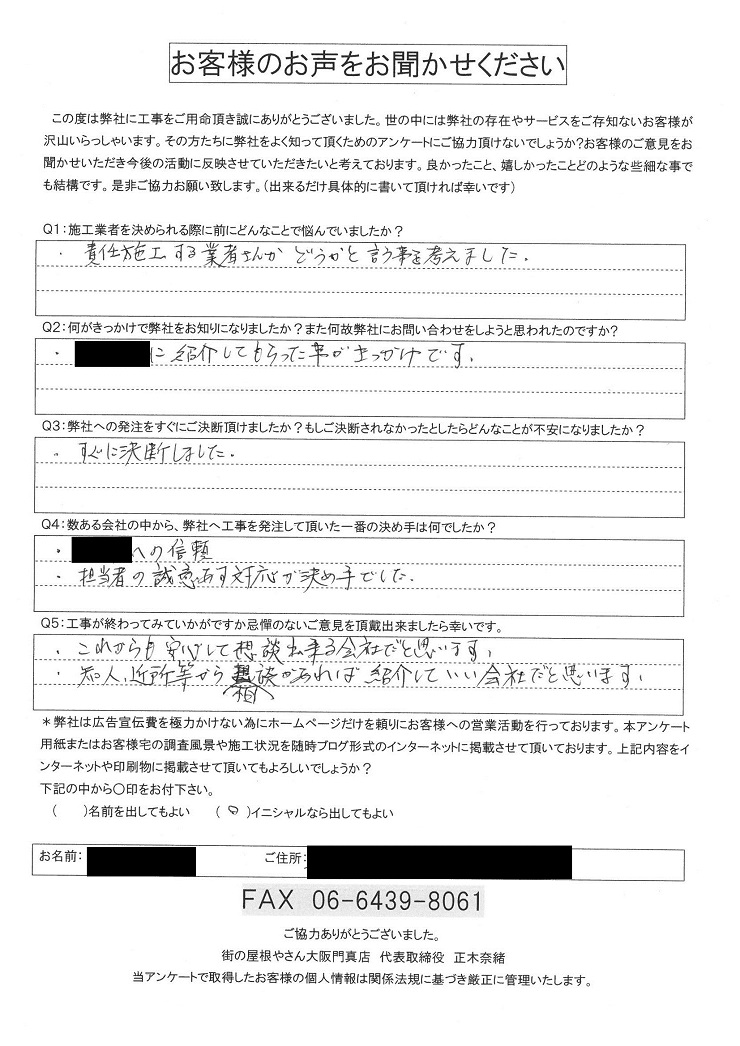 お客様のお声をお聞かせください
この度は弊社に工事をご用命頂き誠にありがとうございました。世の中には弊社の存在やサービスをご存知ないお客様が
沢山いらっしゃいます。その方たちに弊社をよく知って頂くためのアンケートにご協力頂けないでしょうか?お客様のご意見をお
聞かせいただき今後の活動に反映させていただきたいと考えております。良かったこと、嬉しかったことどのような些細な事で
も結構です。是非ご協力お願い致します。(出来るだけ具体的に書いて頂ければ幸いです)
Q1:施工業者を決められる際に前にどんなことで悩んでいましたか?
・責任施工する業者さんかどうかと言う事を考えました.
Q2:何がきっかけで弊社をお知りになりましたか?また何故弊社にお問い合わせをしようと思われたのですか?
・に紹介してもらった事がきっかけです.
Q3:弊社への発注をすぐにご決断頂けましたか?もしご決断されなかったとしたらどんなことが不安になりましたか?
。すぐに決断しました.
Q4:数ある会社の中から、弊社へ工事を発注して頂いた一番の決め手は何でしたか?
・への信頼
・担当者の誠意ある対応が決め手でした.
Q5:工事が終わってみていかがですか忌憚のないご意見を頂戴出来ましたら幸いです。
・これからも安心して想談出来る会社だと思います,
・知人、近所等から相談があれば紹介していい会社だと思います,
*弊社は広告宣伝費を極力かけない為にホームページだけを頼りにお客様への営業活動を行っております。本アンケート
用紙またはお客様宅の調査風景や施工状況を随時ブログ形式のインターネットに掲載させて頂いております。上記内容をイ
ンターネットや印刷物に掲載させて頂いてもよろしいでしょうか?
下記の中から〇印をお付下さい。
( )名前を出してもよい (○)イニシャルなら出してもよい
お名前: ご住所:
FAX 06-6439-8061
ご協力ありがとうございました。
街の屋根やさん大阪門真店 代表取締役 正木奈緒
当アンケートで取得したお客様の個人情報は関係法規に基づき厳正に管理いたします。